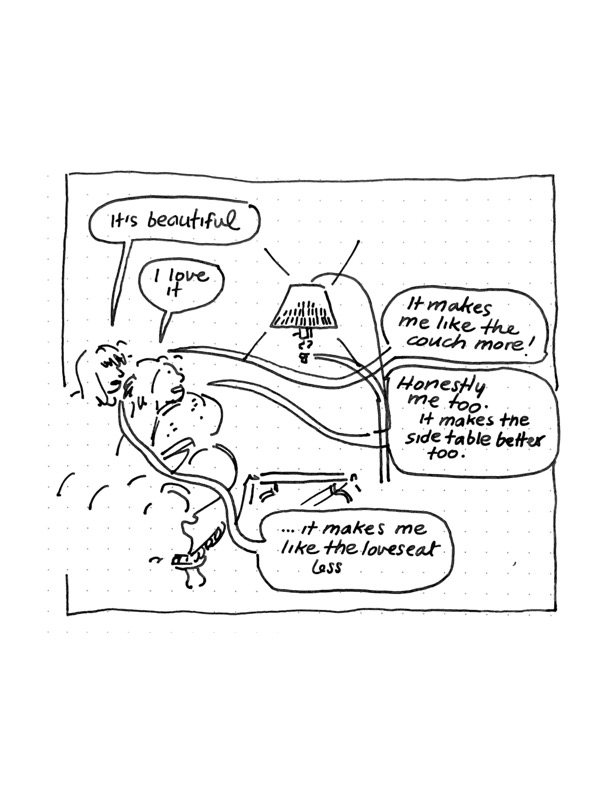 It's beautiful
I love
it
It makes
me like the
couch more!
Honestly
me too.
It makes the
side table better
too.
... it makes me
like the loveseat
less